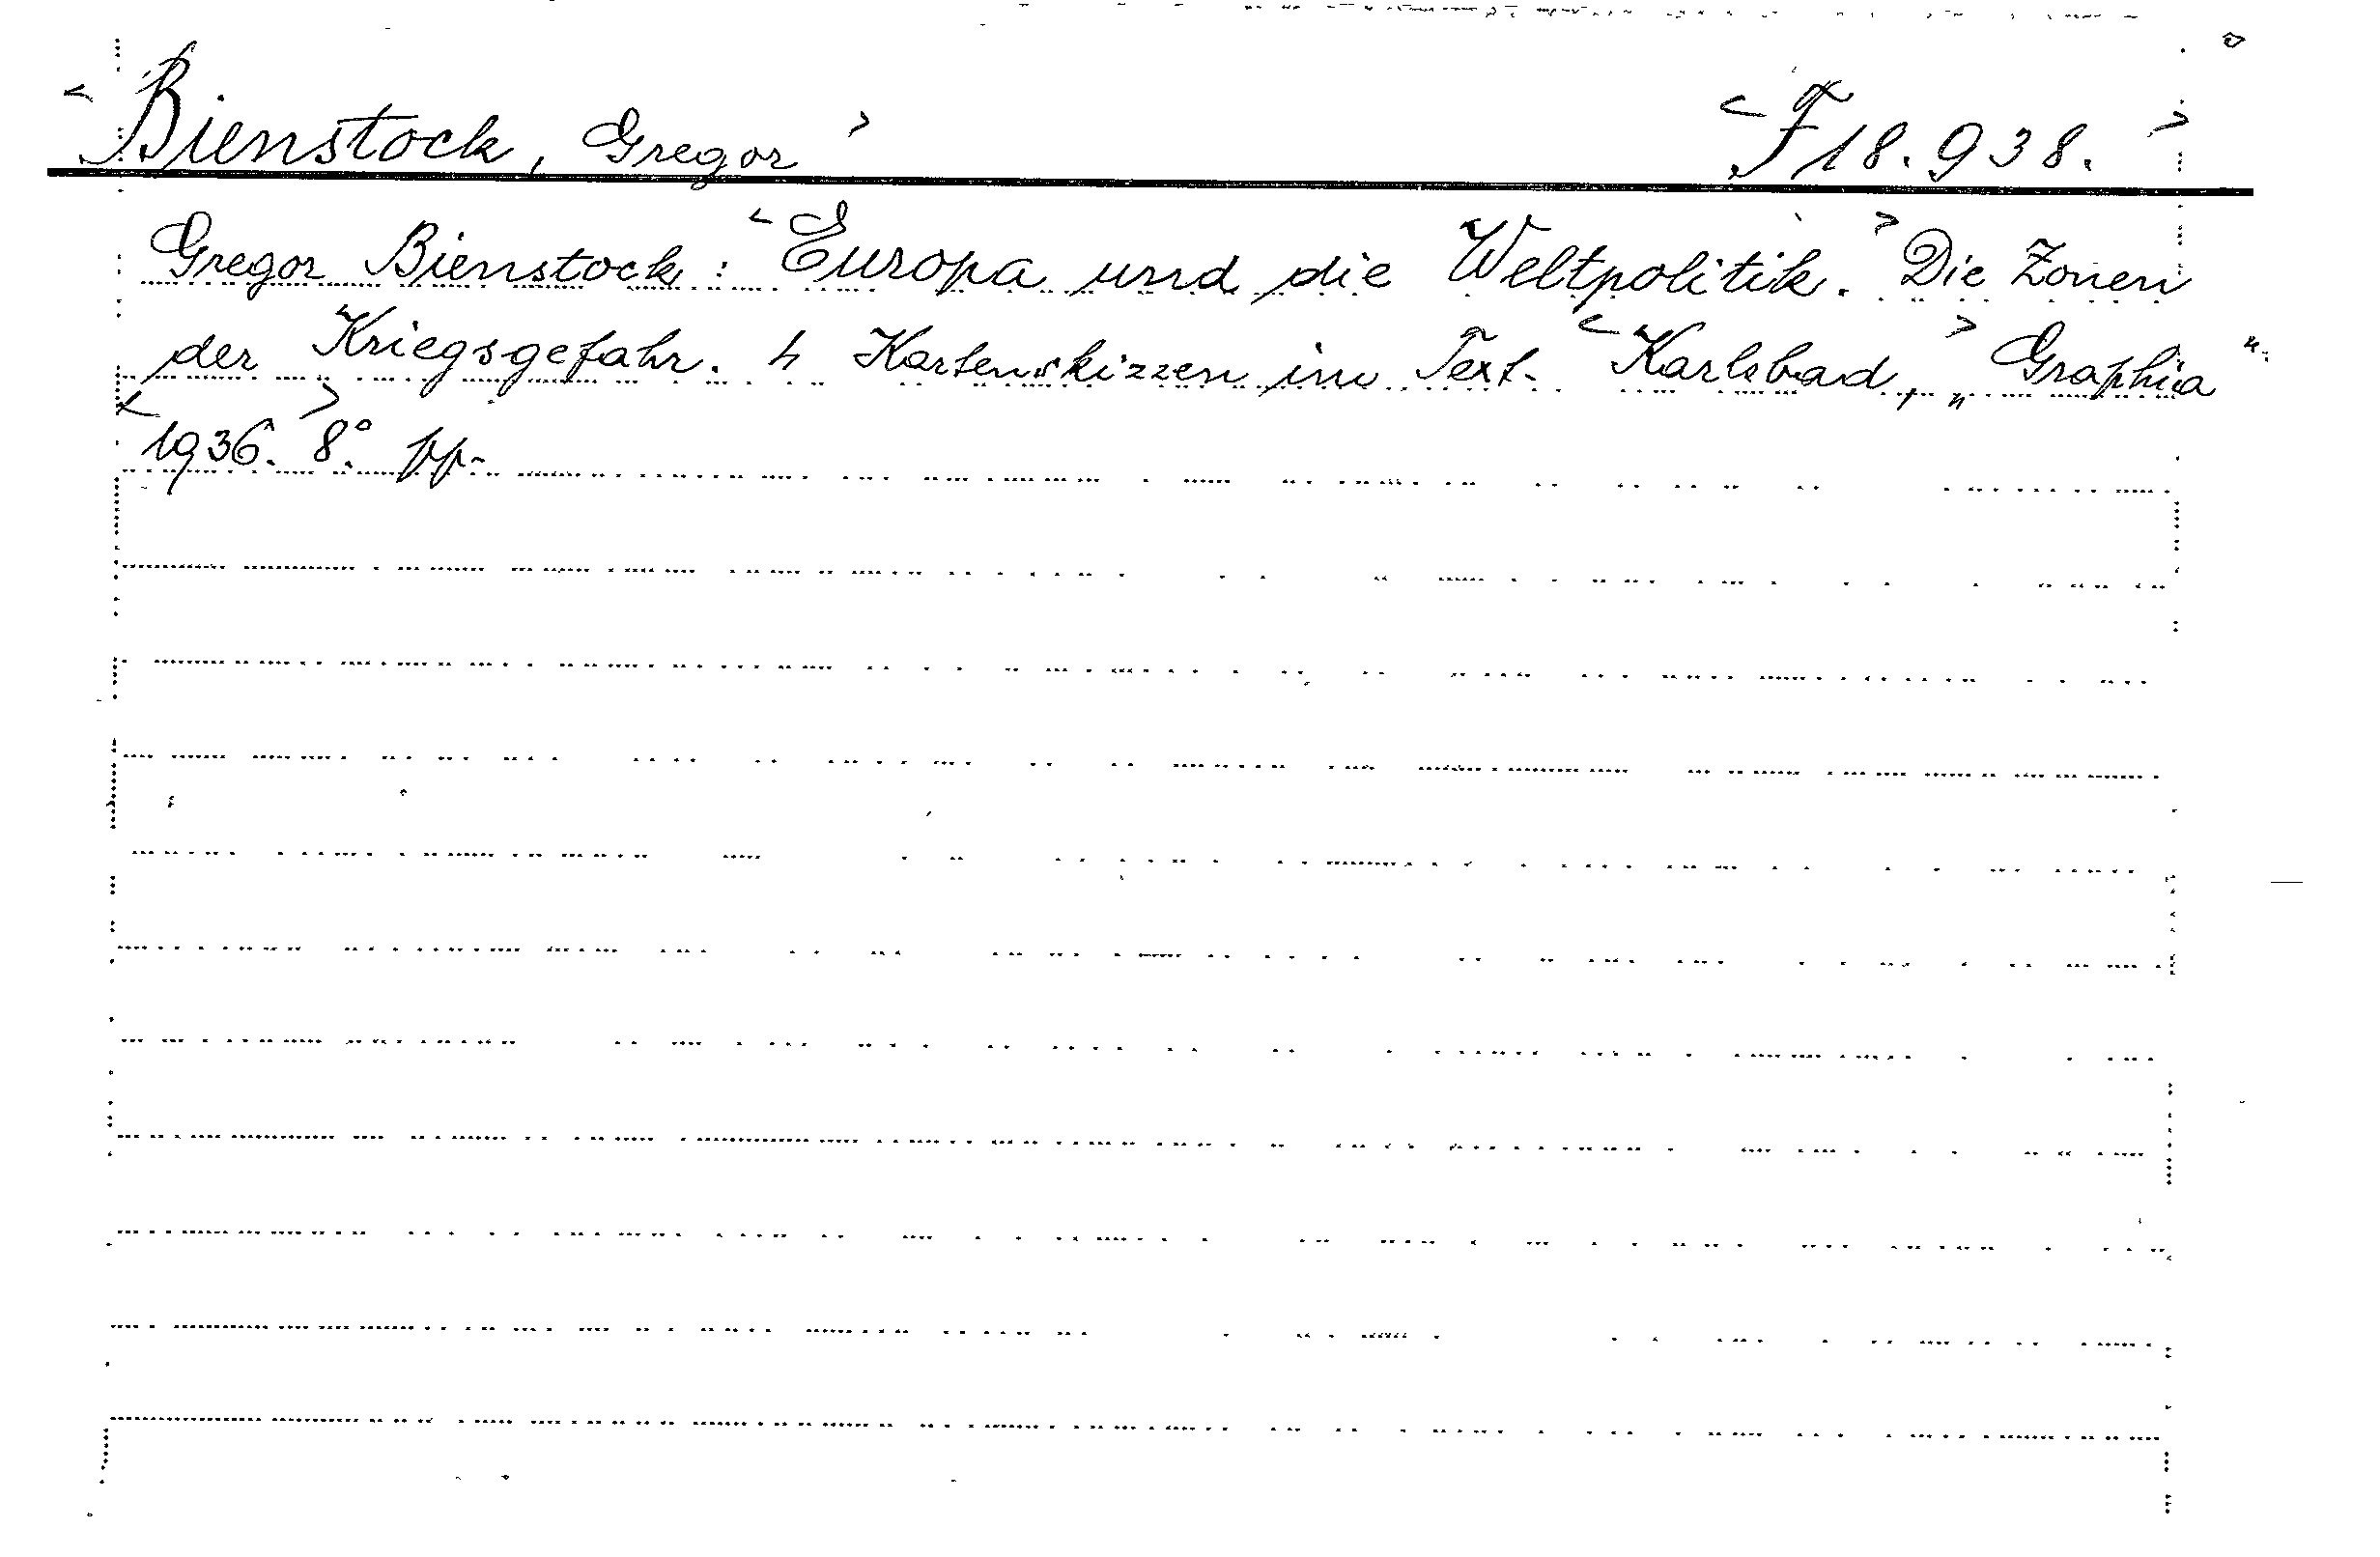 <Bienstock, Gregor> <F 18.938.>
Gregor Bienstock: <Europa und die Weltpolitik.> Die Zonen
der Kriegsgefahr. 4 Kartenskizzen im Text. <Karlsbad,> „Graphia"
<1936.> 8° pp.